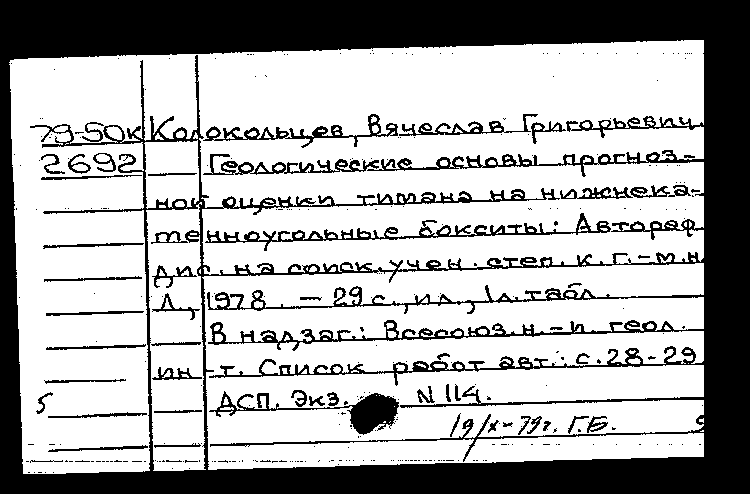 79-50к Колокольцев, Вячеслав Григорьевич.
2692 Геологические основы прогноз-
ной оценки тимана на нижнека-
тенноугольные бокситы: Автореф.
дис. на соиск. учен. степ. к. г.-м.н
Л., 1978. - 29 с., ил., 1л. табл.
В надзаг.: Всесоюз. н.-и. геол.
ин-т. Список работ авт.: с. 28-29
5 ДСП. Экз. N 114.
19/X-79г. Г.Б.